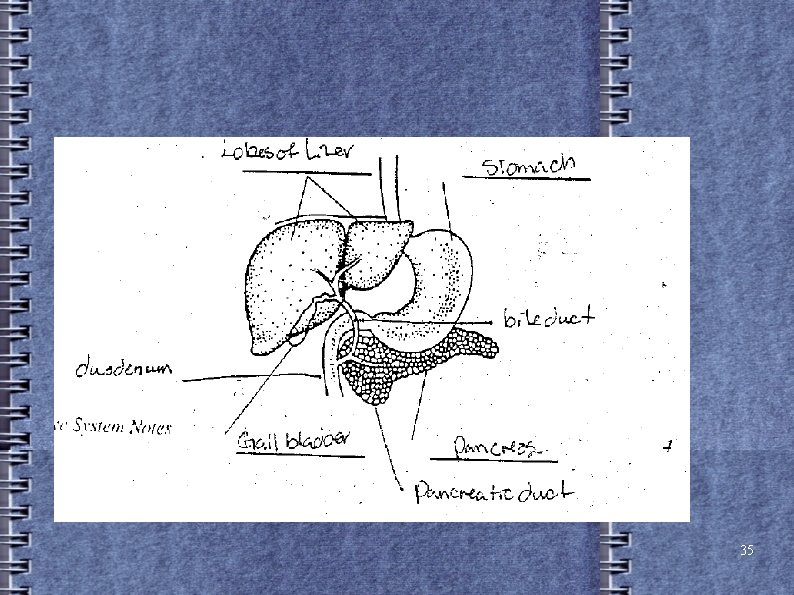 Lobes of Liver
Stomach
bile duct
duodenum
System Notes
Gall bladder
Pancreas
Pancreatic duct
35